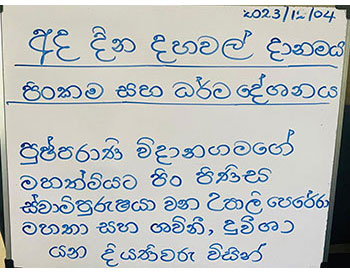 2023/12/04
අද දින දහවල් දානමය
පිංකම සහ ධර්මදේශනය
පුෂ්පරාණි විදානගමගේ
මහත්මියට පිං පිණිස
ස්වාමිපුරුෂයා වන උපාලි පෙරේරා
මහතා සහ ශවිනි, දුවිශා
යන දියණිවරු විසින්